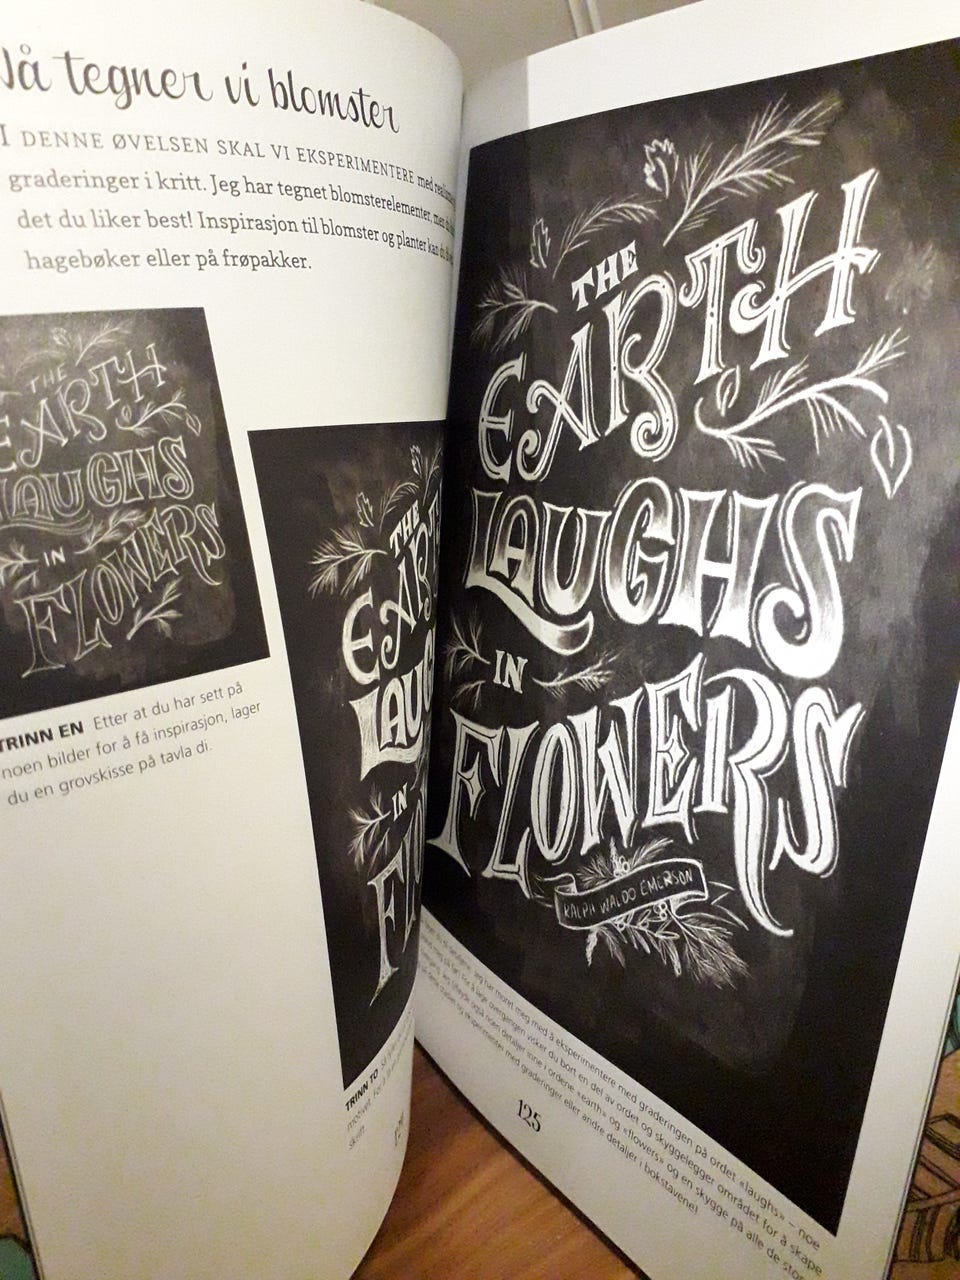 Nå tegner vi blomster
I DENNE ØVELSEN SKAL VI EKSPERIMENTERE med
graderinger i kritt. Jeg har tegnet blomsterelementer, men
det du liker best! Inspirasjon til blomster og planter kan du
hagebøker eller på frøpakker.
THE
EARTH
LAUGHS
IN
FLOWERS
TRINN EN Etter at du har sett på
noen bilder for å få inspirasjon, lager
du en grovskisse på tavla di.
THE
EAR
LAUG
IN
FLO
TRINN TO
motivet.
skrift.
THE
EARTH
LAUGHS
IN
FLOWERS
RALPH WALDO EMERSON
Jeg har moret meg med å eksperimentere med graderingen på ordet «laughs» – noe
for å lage overgangen visker du bort en del av ordet og skyggelegger området for å skape
også noen detaljer inne i ordene «earth» og «flowers» og en skygge på alle de store
og eksperimenter med graderinger eller andre detaljer i bokstavene!
125